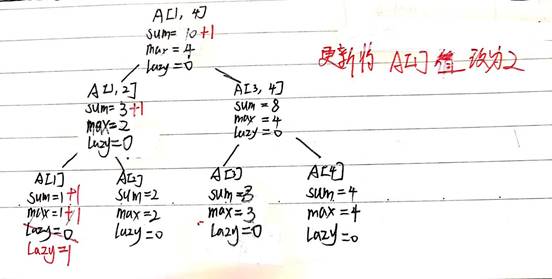 A[1, 4]
sum= 10+1
max = 4
lazy=0
更新将 A[1] 值 改为2
A[1,2]
sum=3+1
max=2
lazy=0
A[3, 4]
sum=8
max=4
lazy=0
A[1]
sum=1+1
max=1+1
lazy=0
lazy=1
A[2]
sum=2
max=2
lazy=0
A[3]
sum=3
max=3
lazy=0
A[4]
sum=4
max=4
lazy=0